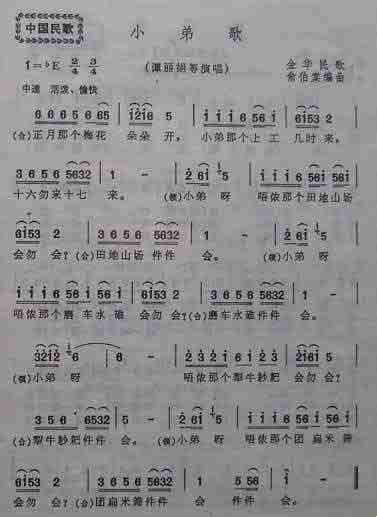 中国民歌
小弟歌
1=♭E 2/4 3/4
(谭丽娟等演唱)
金华民歌
俞伯棠编曲
中速 活泼、愉快
3 5 6 5 6 5 65 | 1216 5 | i i i 6 5 6 56 | 6153 2 |
(合)正月那个梅花 朵朵 开, 小弟那个上工 几时来,
3 6 5 6 5632 | 1 - | 2 61 5 | i i i 6 561 561 |
十六勿来十七 来。 (领)小弟 呀 唔侬那个田地山场
6153 2 | 3 6 5 6 5632 | 1 - | 2 61 5 |
会勿 会?(合)田地山场 件件 会。 (领)小弟 呀
i i i 6 56i 56 i | 6153 2 | 3 6 5 6 5632 | 1 - |
唔侬那个磨 车水 碓 会勿 会?(合)磨车水碓件件 会。
3212 6 | 6 - | 2 3 2 1 6 1 2 3 | 2161 5 |
(领)小弟 呀 唔侬那个犁牛耖耙 会勿 会?
3 5 6 6532 | 5 - | 2 61 5 | i i i 6 56i 56i |
(合)犁牛耖耙件件 会。(领)小弟 呀 唔侬那个团 扁米筛
6153 2 | 3 6 5 6 5632 | 1 2 56 | i - |
会勿 会?(合)团扁米筛件件 会 件件 会。